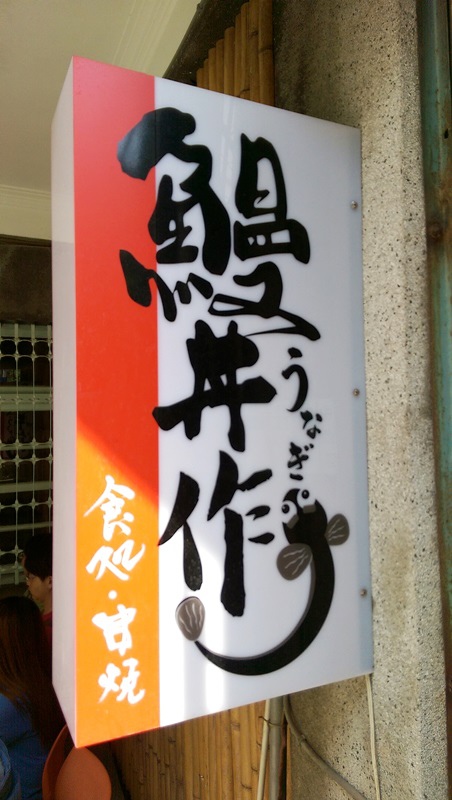 鰻丼作
うなぎ
食処·甘燒